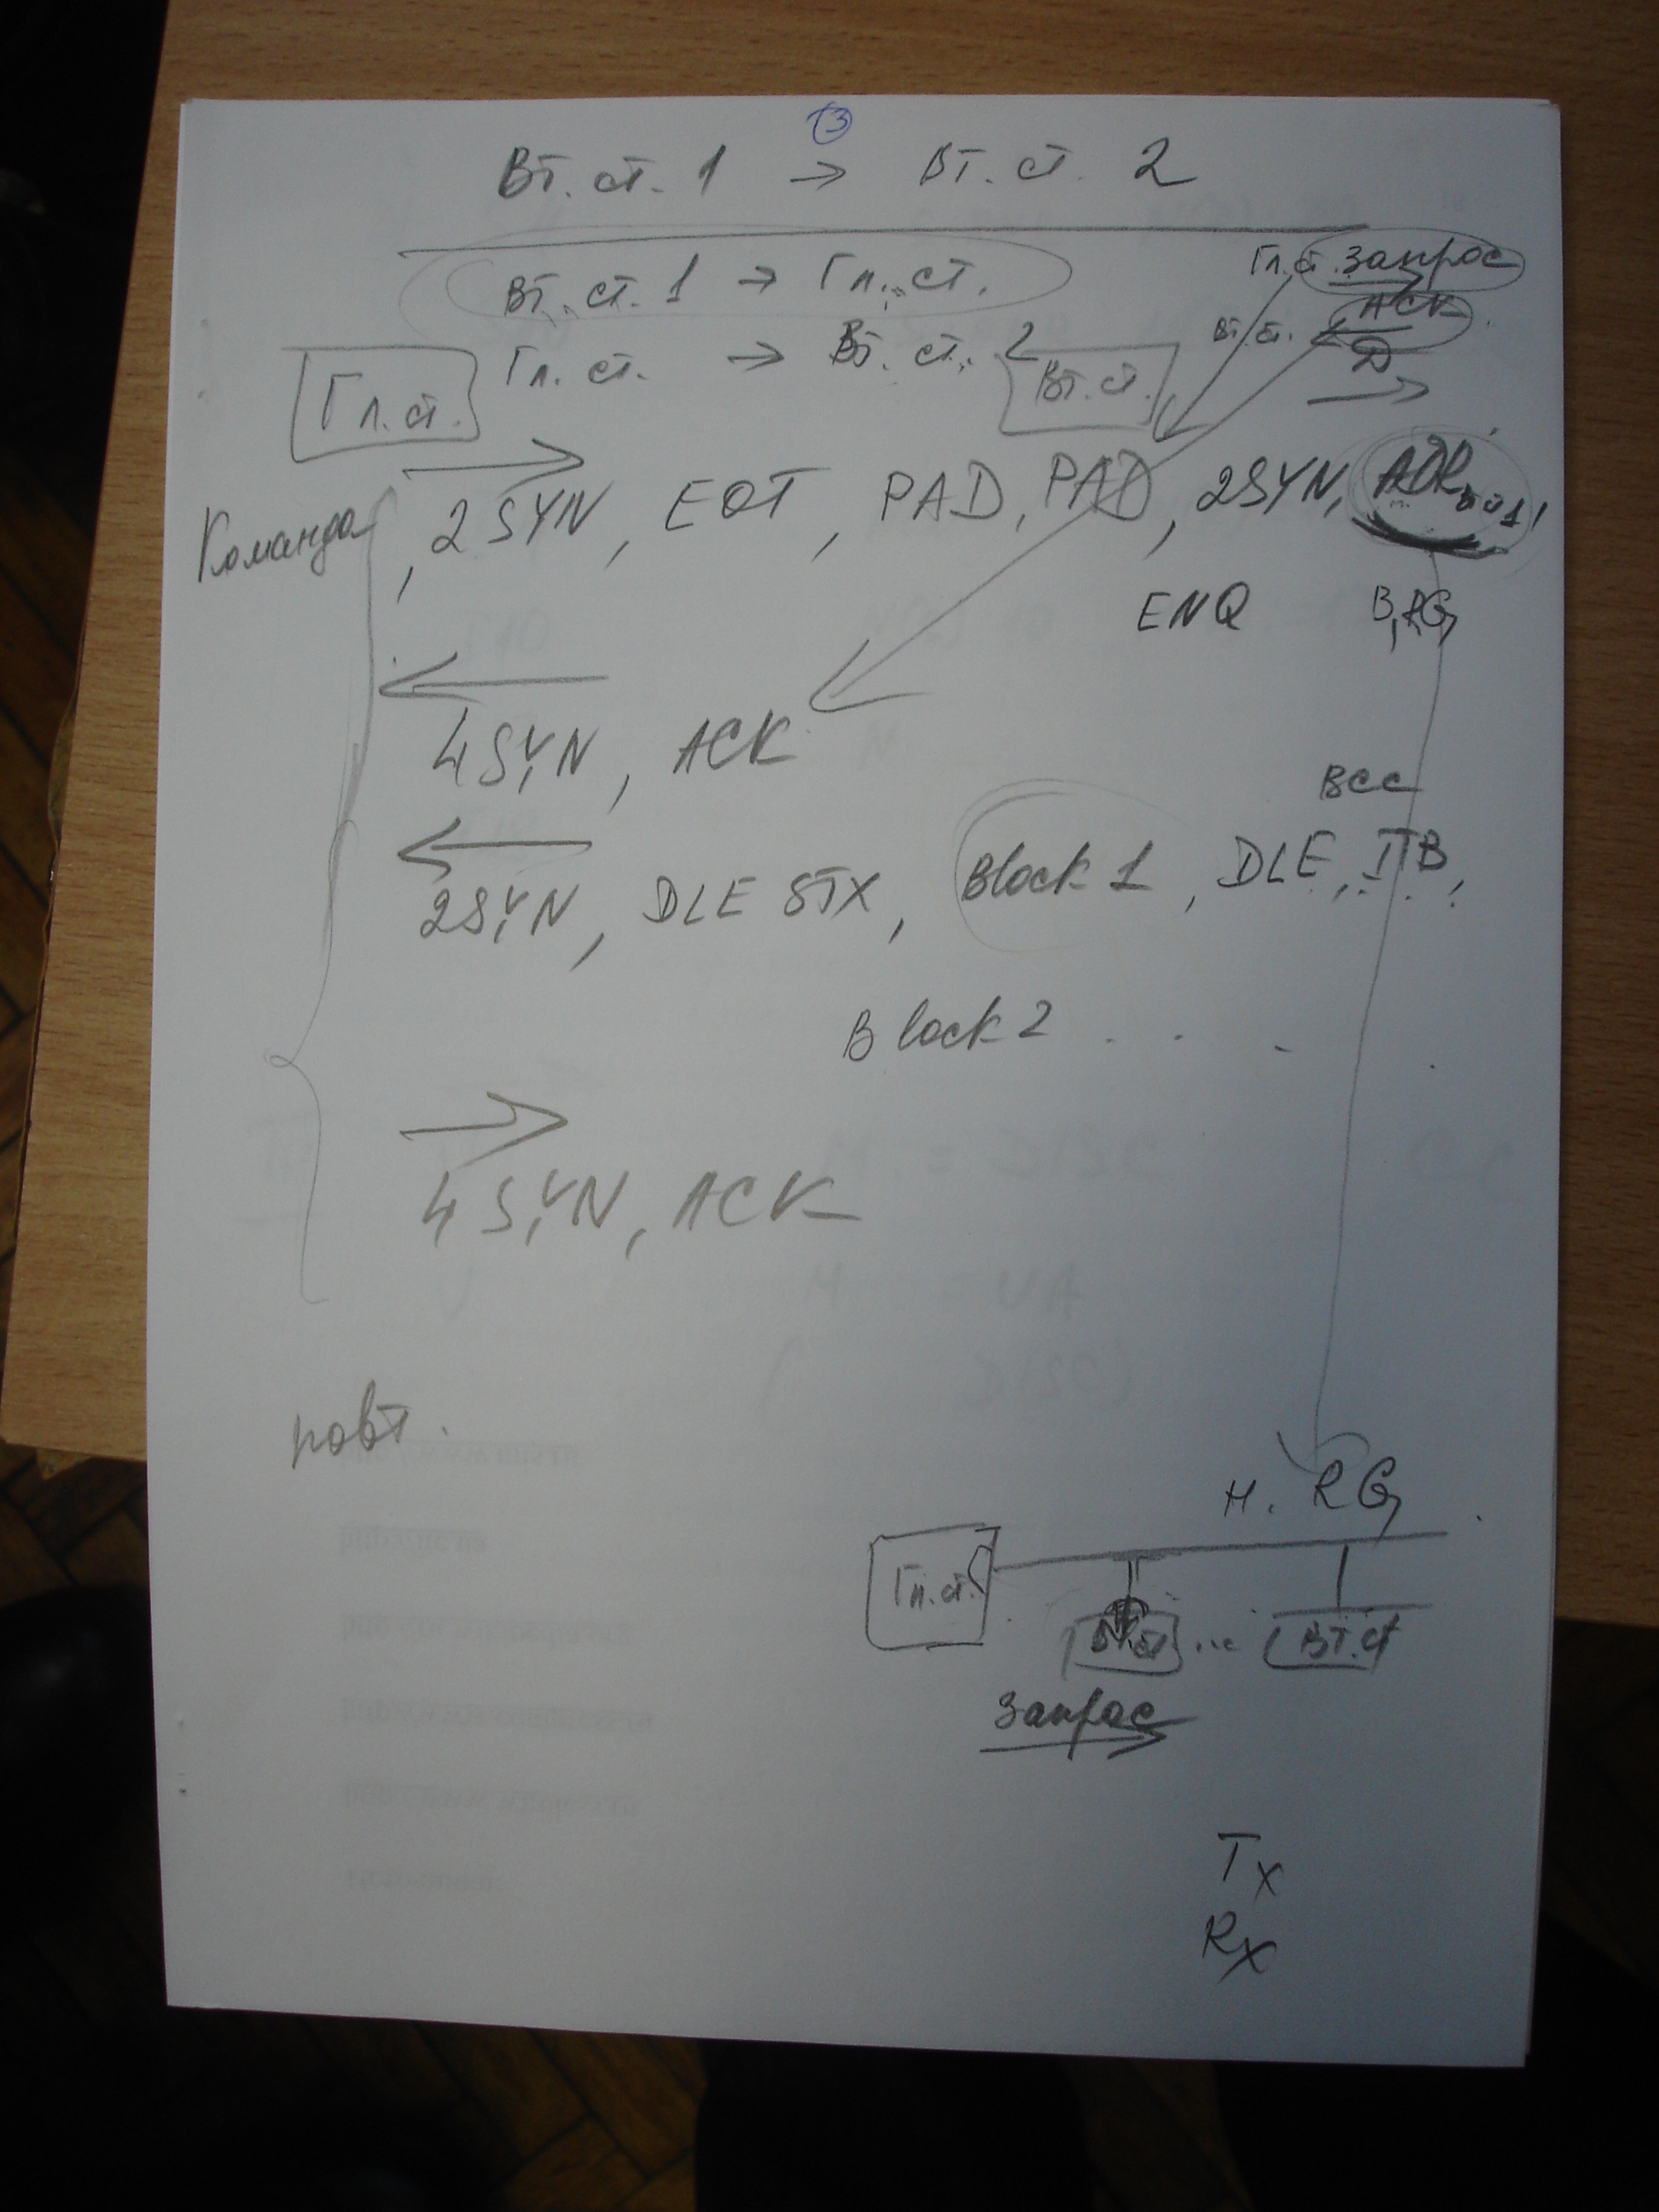 13
Вт. ст. 1 → Вт. ст. 2
Вт. ст. 1 → Гл. ст.
Гл. ст. Запрос
Вт. ст. ACK
D
Гл. ст. → Вт. ст. 2
Гл. ст.
Вт. ст.
Команда, 2SYN, EOT, PAD, PAD, 2SYN, ADR
ENQ B, RG
4SYN, ACK
BCC
2SYN, DLE STX, Block 1, DLE, ITB,
Block 2 . . .
4SYN, ACK
н. RG
Гл. ст. Вт. ст ... Вт. ст
Запрос
Tx
Rx